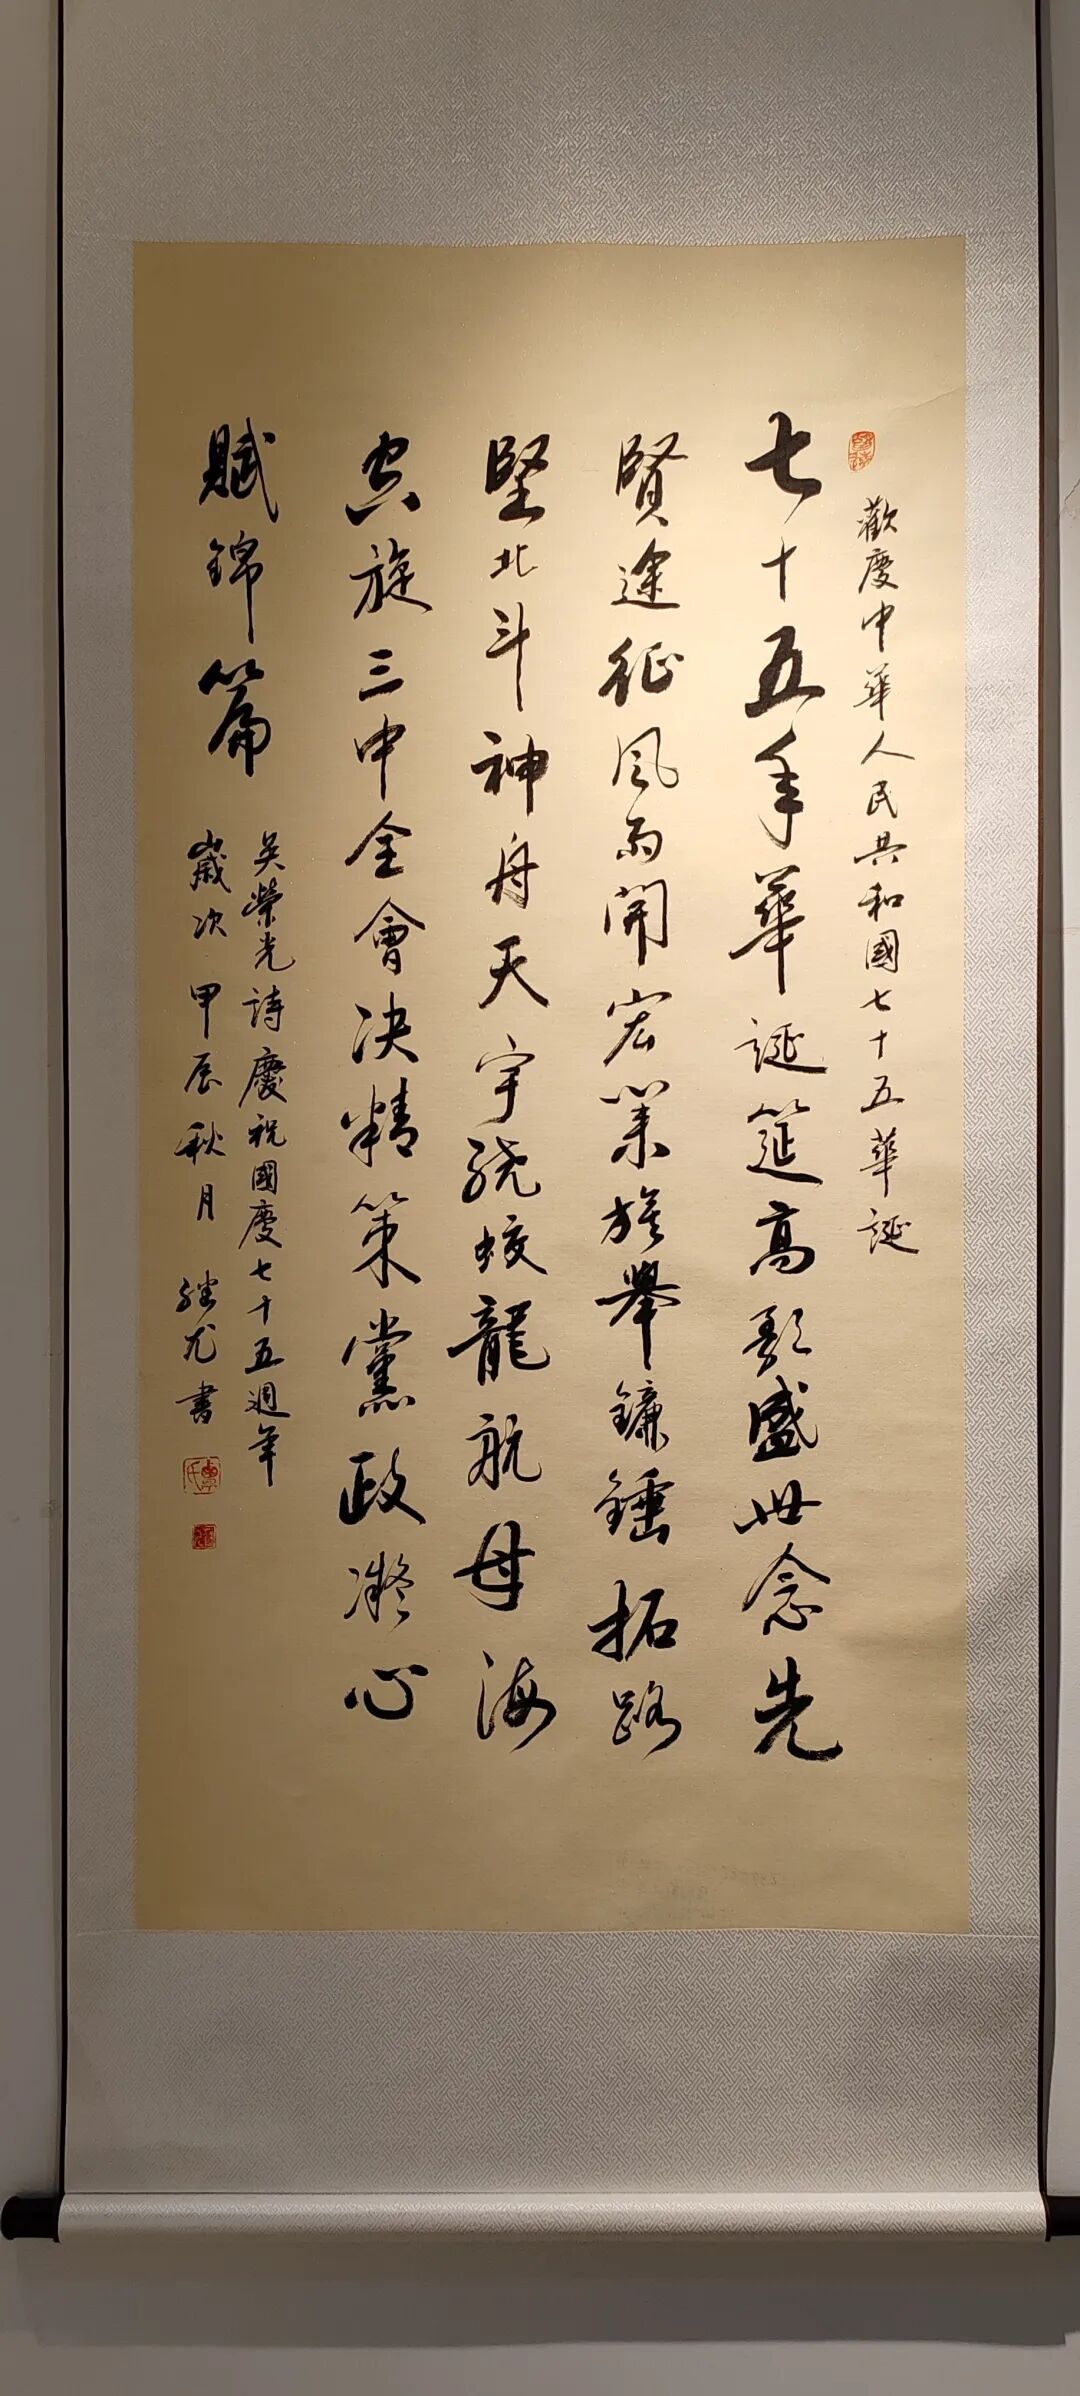 歡慶中華人民共和國七十五華誕
七十五年華誕筵高歌盛世念先
賢途征風雨開宏業旗舉鐮錘拓路
堅北斗神舟天宇繞蛟龍航母海
空旋三中全會决精策黨政凝心
賦錦篇
吳榮光詩慶祝國慶七十五週年
歲次甲辰秋月 尤書